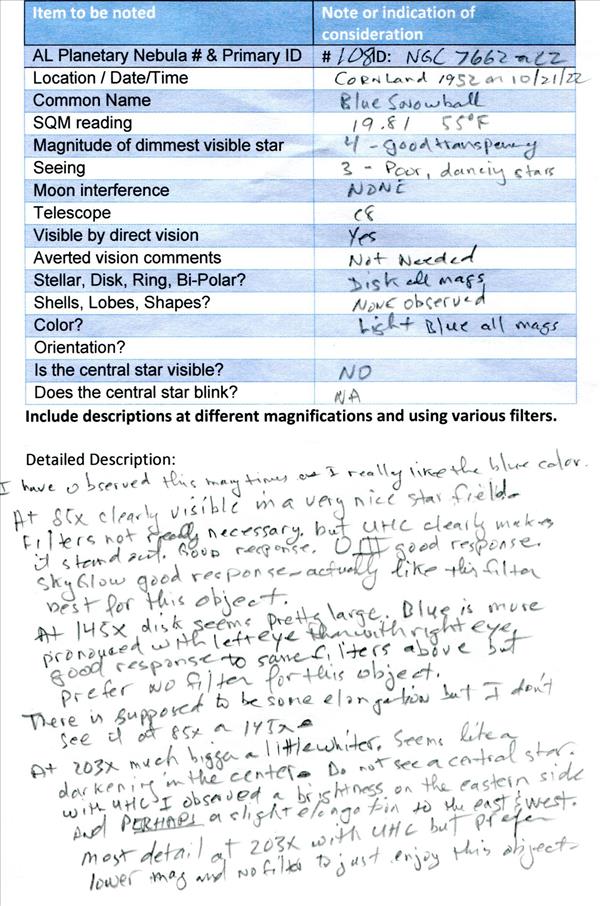 Item to be noted Note or indication of consideration
AL Planetary Nebula # & Primary ID # 108 ID: NGC 7662
Location / Date/Time Cornland 1952 on 10/21/22
Common Name Blue Snowball
SQM reading 19.81 55°F
Magnitude of dimmest visible star 4 - good
Seeing 3 - Poor, dancing stars
Moon interference NONE
Telescope C8
Visible by direct vision Yes
Averted vision comments Not Needed
Stellar, Disk, Ring, Bi-Polar? Disk all mags
Shells, Lobes, Shapes? None observed
Color? Light Blue all mags
Orientation?
Is the central star visible? NO
Does the central star blink? NA
Include descriptions at different magnifications and using various filters.
Detailed Description:
I have observed this many times as I really like the blue color.
At 85x clearly visible in a very nice star field.
Filters not really necessary, but UHC clearly makes
it stand out. Good response. OIII good response.
SkyGlow good response - actually like this filter
best for this object.
At 145x disk seems pretty large. Blue is more
pronounced with left eye than with right eye,
good response to same filters above but
prefer no filter for this object.
There is supposed to be some elongation but I don't
see it at 85x or 145x.
At 203x much bigger a little whiter. Seems like a
darkening in the center. Do not see a central star.
with UHC I observed a brightness on the eastern side
and PERHAPS a slight elongation to the east & west.
most detail at 203x with UHC but prefer
lower mag and no filter to just enjoy this object.